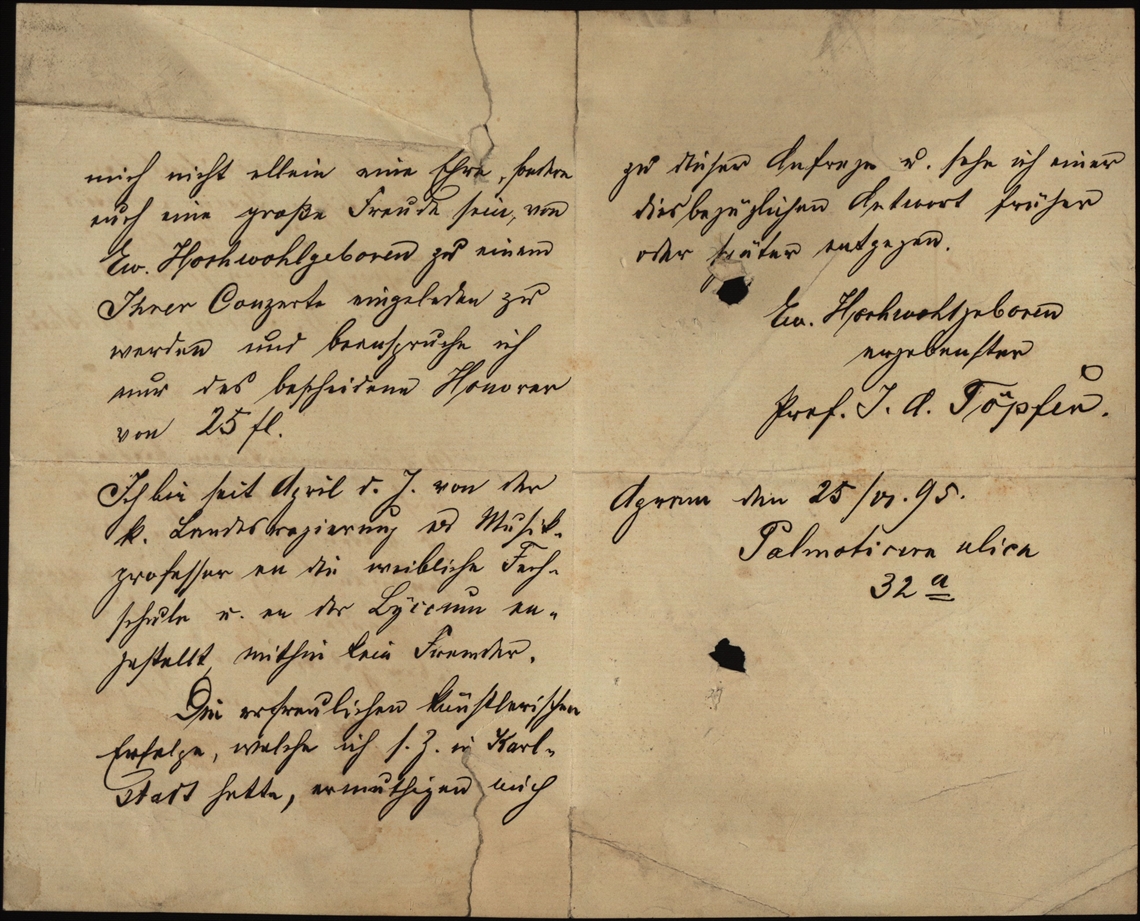 mich nicht allein eine Ehre, sondern
auch eine große Freude sein, von
Ew. Hochwohlgeboren zu einem
Ihrer Conzerte eingeladen zu
werden und beanspruche ich
nur das bescheidene Honorar
von 25 fl.
Ich bin seit April d. J. von der
k. Landesregierung als Musik-
professor an die weibliche Fach-
schule u. an das Lyceum an-
gestellt, mithin kein Fremder.
Die erfreulichen künstlerischen
Erfolge, welche ich s. Z. in Karl-
stadt hatte, ermuthigen mich
zu dieser Anfrage u. sehe ich einer
diesbezüglichen Antwort früher
oder später entgegen.
Ew. Hochwohlgeboren
ergebenster
Prof. J. A. Töpfer.
Agram den 25/VI. 95.
Palmoticeva ulica
32 a